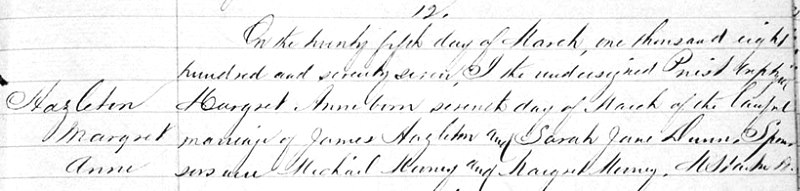 12.
On the twenty fifth day of March, one thousand eight
hundred and seventy seven, I the undersigned Priest baptized
Hazleton Margret Anne born seventh day of March of the lawful
Margret marriage of James Hazleton and Sarah Jane Dunn. Spon-
Anne sors were Michael Meeney and Margret Meeney.